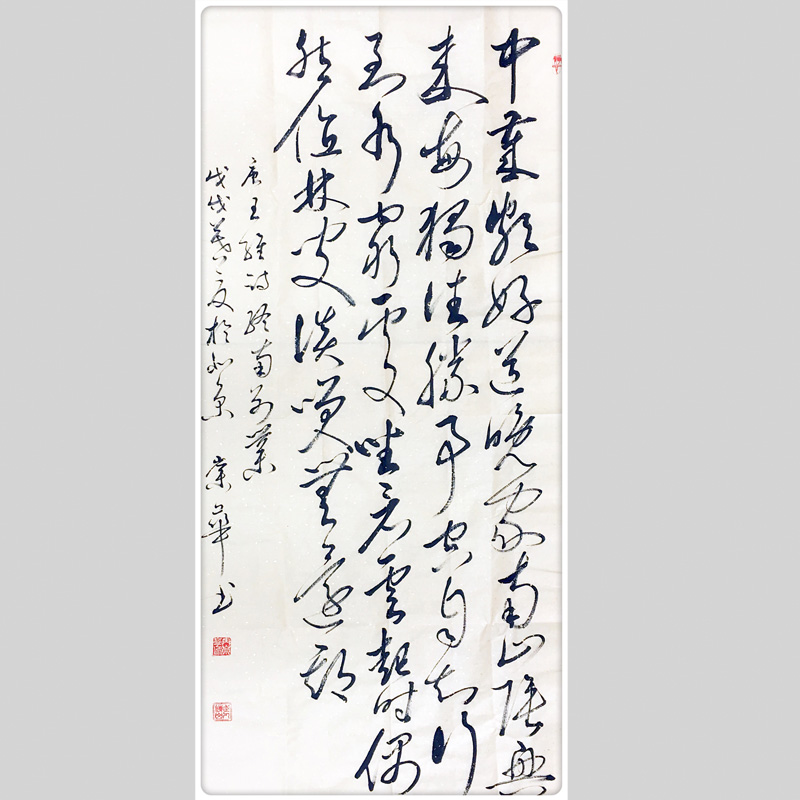 中歲頗好道晚家南山陲興
來每獨往勝事空自知行
到水窮處坐看雲起时偶
然值林叟談笑無還期
唐王維詩終南別業
戊戌夏於北京 崇華书